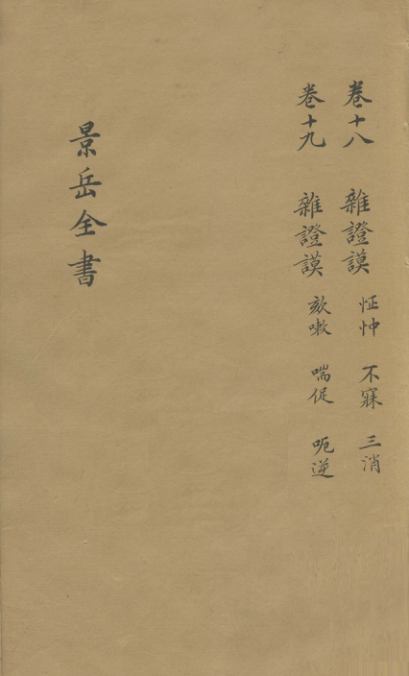 卷十八 雜證謨 怔忡 不寐 三消
卷十九 雜證謨 欬嗽 喘促 呃逆
景岳全書